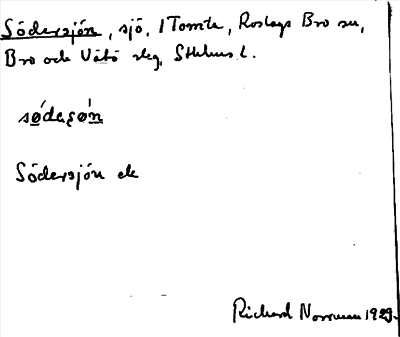 Södersjön, sjö, 1 Tomta, Roslags Bro sn,
Bro och Vätö skg, Sthlms l.
sø´dəʂø´n
Södersjön ek
Richard Norrman 1929.